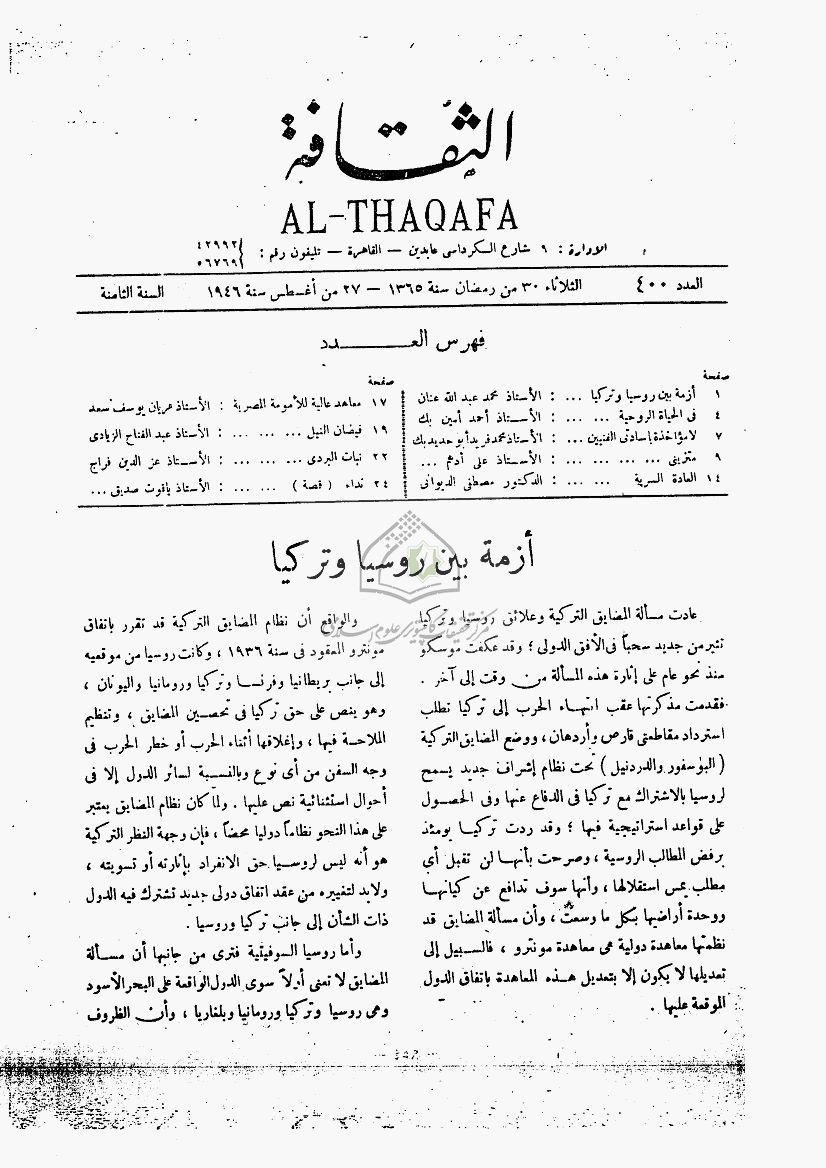 الثقافة
AL-THAQAFA
الادارة : ٩ شارع الكرداسى عابدين — القاهرة — تليفون رقم : ٤٢٩٩٢
٥٦٧٦٩
العدد ٤٠٠ الثلاثاء ٣٠ من رمضان سنة ١٣٦٥ — ٢٧ من أغسطس سنة ١٩٤٦ السنة الثامنة
فهرس العـــــدد
صفحة
١ أزمة بين روسيا وتركيا ... : الأستاذ محمد عبد الله عنان
٤ فى الحياة الروحية ... ... : الأســتاذ أحمد أمين بك
٧ لامؤاخذة ياسادتى الفنيين ... : الأستاذ محمد فريد أبو حديد بك
٩ متزينى ... ... ... ... : الأســتاذ على أدهم ...
١٤ العادة السرية ... ... : الدكتور مصطفى الديوانى
صفحة
١٧ معاهد عالية للأمومة المصرية : الأستاذ عريان يوسف سعد
١٩ فيضان النيل ... ... ... : الأستاذ عبد الفتاح الزيادى
٢٢ نبات البردى ... ... ... : الأســتاذ عز الدين فراج
٢٤ نداء ( قصة ) ... ... : الأستاذ ياقوت صديق ...
أزمة بين روسيا وتركيا
عادت مسألة المضايق التركية وعلائق روسيا وتركيا
تثير من جديد سحباً فى الأفق الدولى ؛ وقد عكفت موسكو
منذ نحو عام على إثارة هذه المسألة من وقت إلى آخر .
فقدمت مذكرتها عقب انتهــاء الحرب إلى تركيا تطلب
استرداد مقاطعتى قارص وأردهان ، ووضع المضايق التركية
( البوسفور والدردنيل ) تحت نظام إشراف جديد يسمح
لروسيا بالاشتراك مع تركيا فى الدفاع عنها وفى الحصول
على قواعد استراتيجية فيها ؛ وقد ردت تركيــا يومئذ
برفض المطالب الروسية ، وصرحت بأنهــا لن تقبل أى
مطلب يمس استقلالها ، وأنها سوف تدافع عن كيانهــا
ووحدة أراضيها بكل ما وسعت ، وأن مسألة المضايق قد
نظمتها معاهدة دولية هى معاهدة مونترو ، فالســبيل إلى
تعديلها لا يكون إلا بتعديل هــذه المعاهدة باتفاق الدول
الموقعة عليها .
والواقع أن نظام المضايق التركية قد تقرر باتفاق
مونترو المعقود فى سنة ١٩٣٦ ، وكانت روسيا من موقعيه
إلى جانب بريطانيا وفرنسا وتركيا ورومانيا واليونان ،
وهو ينص على حق تركيا فى تحصين المضايق ، وتنظيم
الملاحة فيها ، وإغلاقها أثناء الحرب أو خطر الحرب فى
وجه السفن من أى نوع وبالنسبة لسائر الدول إلا فى
أحوال استثنائية نص عليها . ولما كان نظام المضايق يعتبر
على هذا النحو نظاماً دوليا محضاً ، فإن وجهة النظر التركية
هو أنه ليس لروســيا حق الانفراد بإثارته أو تسويته ،
ولابد لتغييره من عقد اتفاق دولى جديد تشترك فيه الدول
ذات الشأن إلى جانب تركيا وروسيا .
وأما روسيا السوفيتية فترى من جانبها أن مسـألة
المضايق لا تعنى أولاً سوى الدول الواقعة على البحر الأسود
وهى روسيا وتركيا ورومانيا وبلغاريا ، وأن الظروف
مرکز تحقیقات کامپیوتری علوم اسلامی